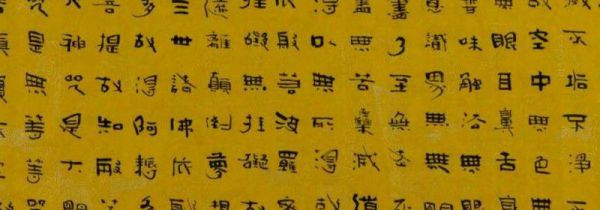 滅不垢不淨不
故空中無色無
無眼耳鼻舌身
香味觸法無眼
意識界無無明
盡乃至無老死
盡無苦集滅道
得以無所得故
依般若波羅蜜
罣礙無罣礙故
遠離顛倒夢想
三世諸佛依般
多故得阿耨多
菩提故知般若
大神咒是大明
咒是無等等咒